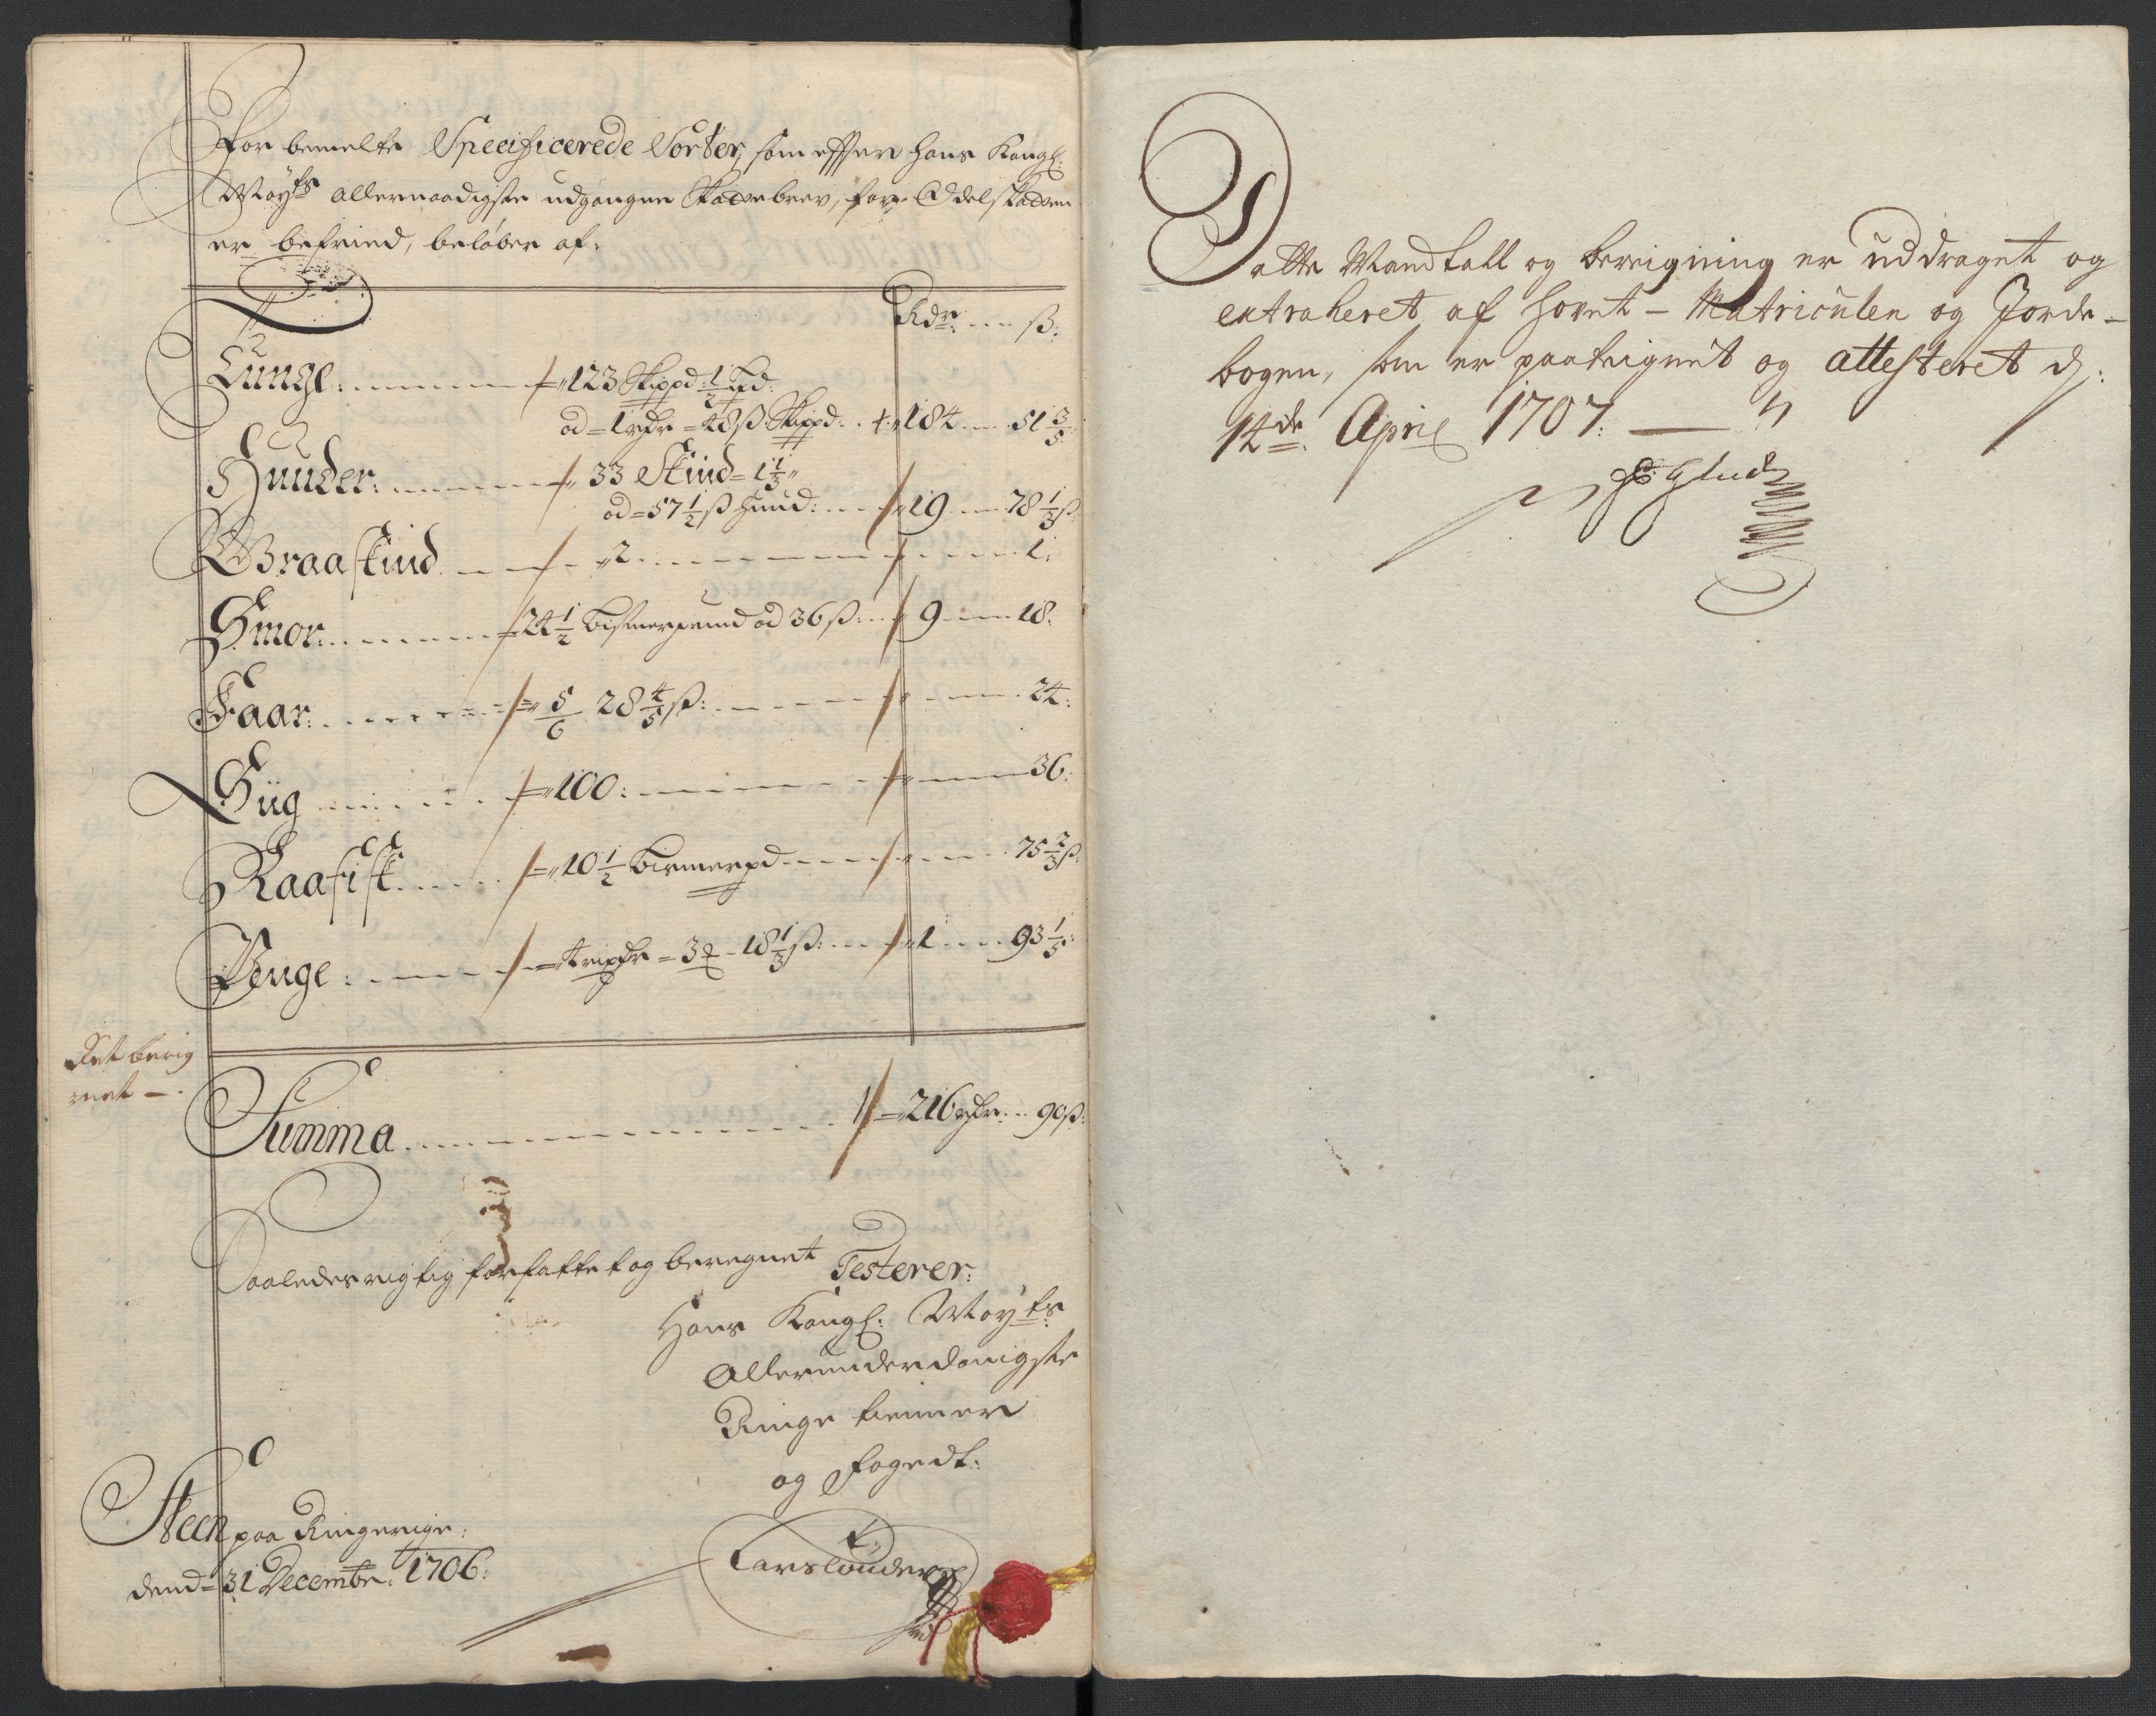 For bemelte Specificerede Sorter, som efter hans Kongl:
Mayts allernaadigste udgangne Skattebrev, for Odelskatten
er befried, beløber af:
Rdr: ß:
Tunge: 123 Skippd: 1/2 Td:
ad 1 rdr 48 ß Skippd. 184 51 3/5
Huuder: 33 Skind 1 1/3
ad 57 1/2 ß huud: 19 78 1/3 ß
Graaskind 2 1:
Smør: 24 1/2 Bismerpund ad 36 ß: 9 18:
Faar: 5/6 28 4/5 ß: 24:
Siig 100: 36:
Raafisk 10 1/2 Bismerpd 75 2/3 ß:
Penge: 4 ripdr 3 18 1/3 ß: 1 93 1/5:
Ret bereig
net
Summa 216 rdr 90 ß:
Saaledes rigtig forfattet og beregnet Testerer:
Hans Kongl: Mayts
Allerunderdanigste
Ringe tienner
og Fogedt:
Steen paa Ringerige:
dend 31 Decembr: 1706:
Dette Mandtall og bereigning er uddraget og
extraheret af Hovet-Matriculen og Jorde-
bogen, som er paateignet og attesteret d:
14de April 1707: